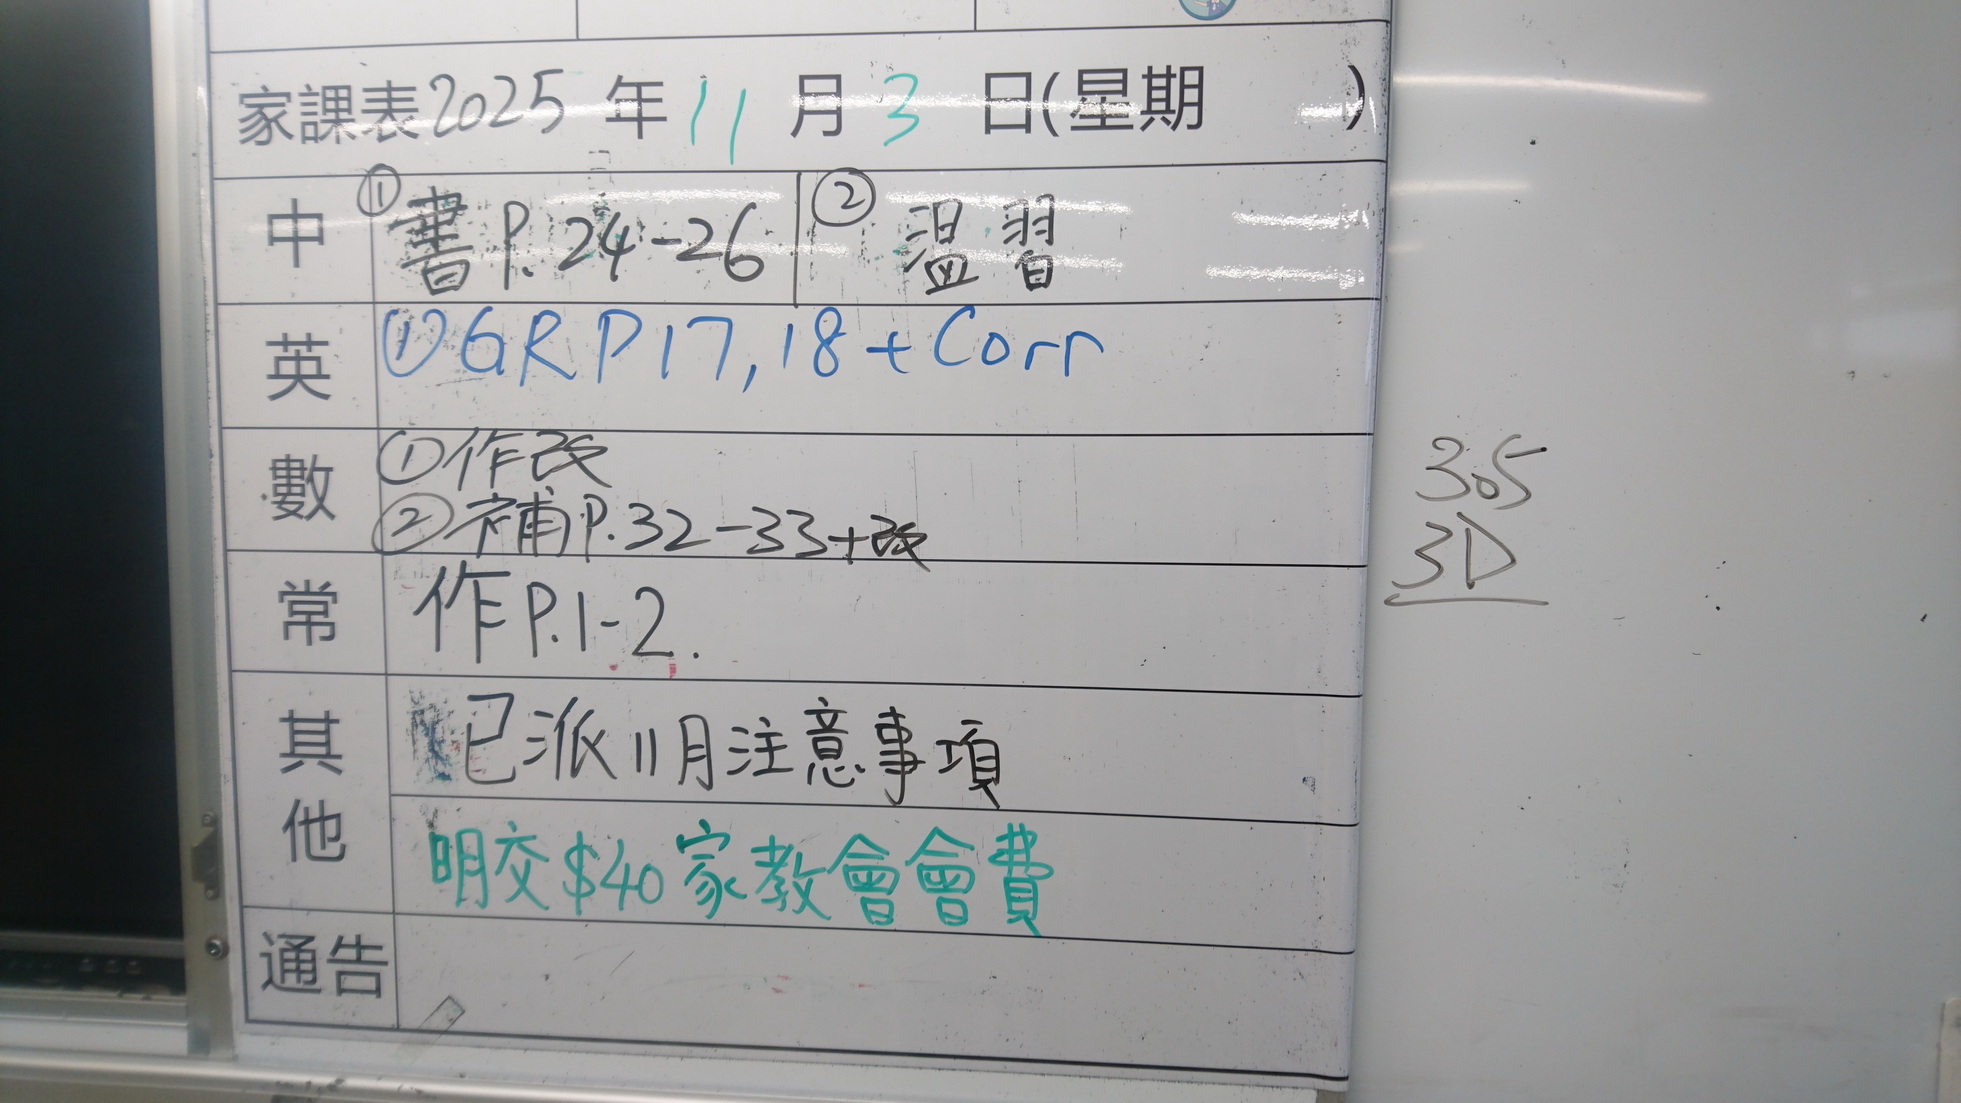 家課表2025年11月3日(星期 )
中 ① 書 P.24-26 ② 溫習
英 ① GR P17,18 + Corr
數 ① 作改
② 補 P.32-33+改
常 作 P.1-2.
其他 已派11月注意事項
明交$40家教會會費
通告
305
3D